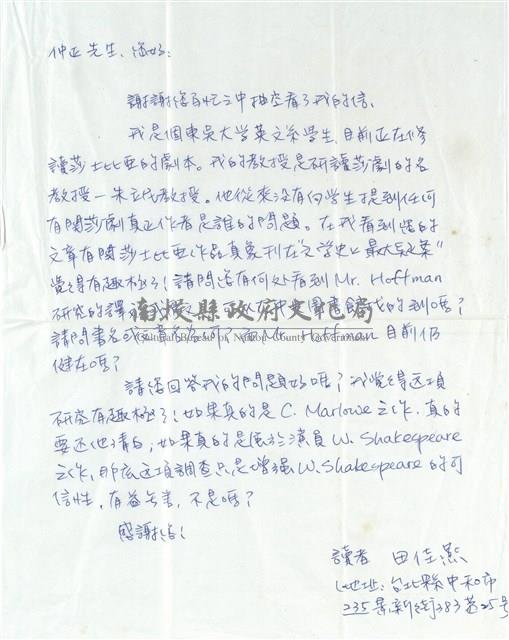 仲正先生,您好:
謝謝您百忙之中抽空看了我的信、
我是個東吳大学英文系学生,目前正在修
讀莎士比亞的劇本。我的教授是研讀莎劇的名
教授-朱立民教授。他從來沒有向學生提到任何
有関莎劇真正作者是誰的問題。在我看到您的
文章有関莎士比亞作品真象刊在"文学史上最大疑案"
覺得有趣極了!請問您有何处看到Mr. Hoffman
研究的譯
南投縣政府文化局
圖書館找的到嗎?
請問書名
Mr. Hoffman 目前仍
Cultural Bureau of Nantou County Government
健在嗎?
請您回答我的問題好嗎?我覺得这項
研究有趣極了!如果真的是C. Marlowe之作,真的
要还他清白;如果真的是屬於演員W. Shakespeare
之作,那底这項調查只是增强W. Shakespeare的可
信性,有益無害,不是嗎?
感謝您!
讀者 田佳
地址:台北縣中和市
235景新街383巷25号